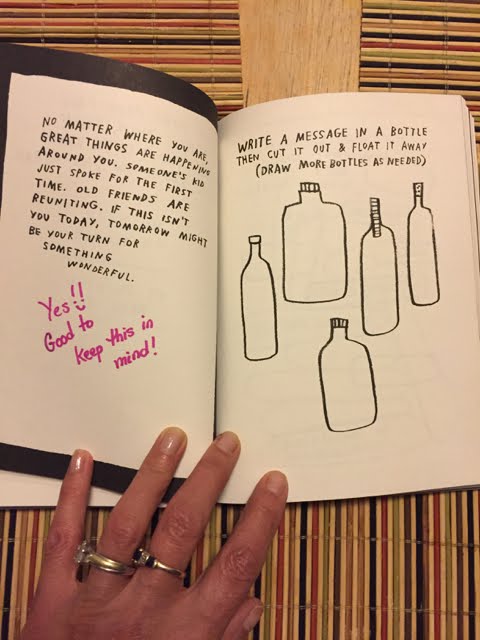 NO MATTER WHERE YOU ARE,
GREAT THINGS ARE HAPPENING
AROUND YOU. SOMEONE'S KID
JUST SPOKE FOR THE FIRST
TIME. OLD FRIENDS ARE
REUNITING. IF THIS ISN'T
YOU TODAY, TOMORROW MIGHT
BE YOUR TURN FOR
SOMETHING
WONDERFUL.
Yes!!
Good to
keep this in
mind!
WRITE A MESSAGE IN A BOTTLE
THEN CUT IT OUT & FLOAT IT AWAY
(DRAW MORE BOTTLES AS NEEDED)